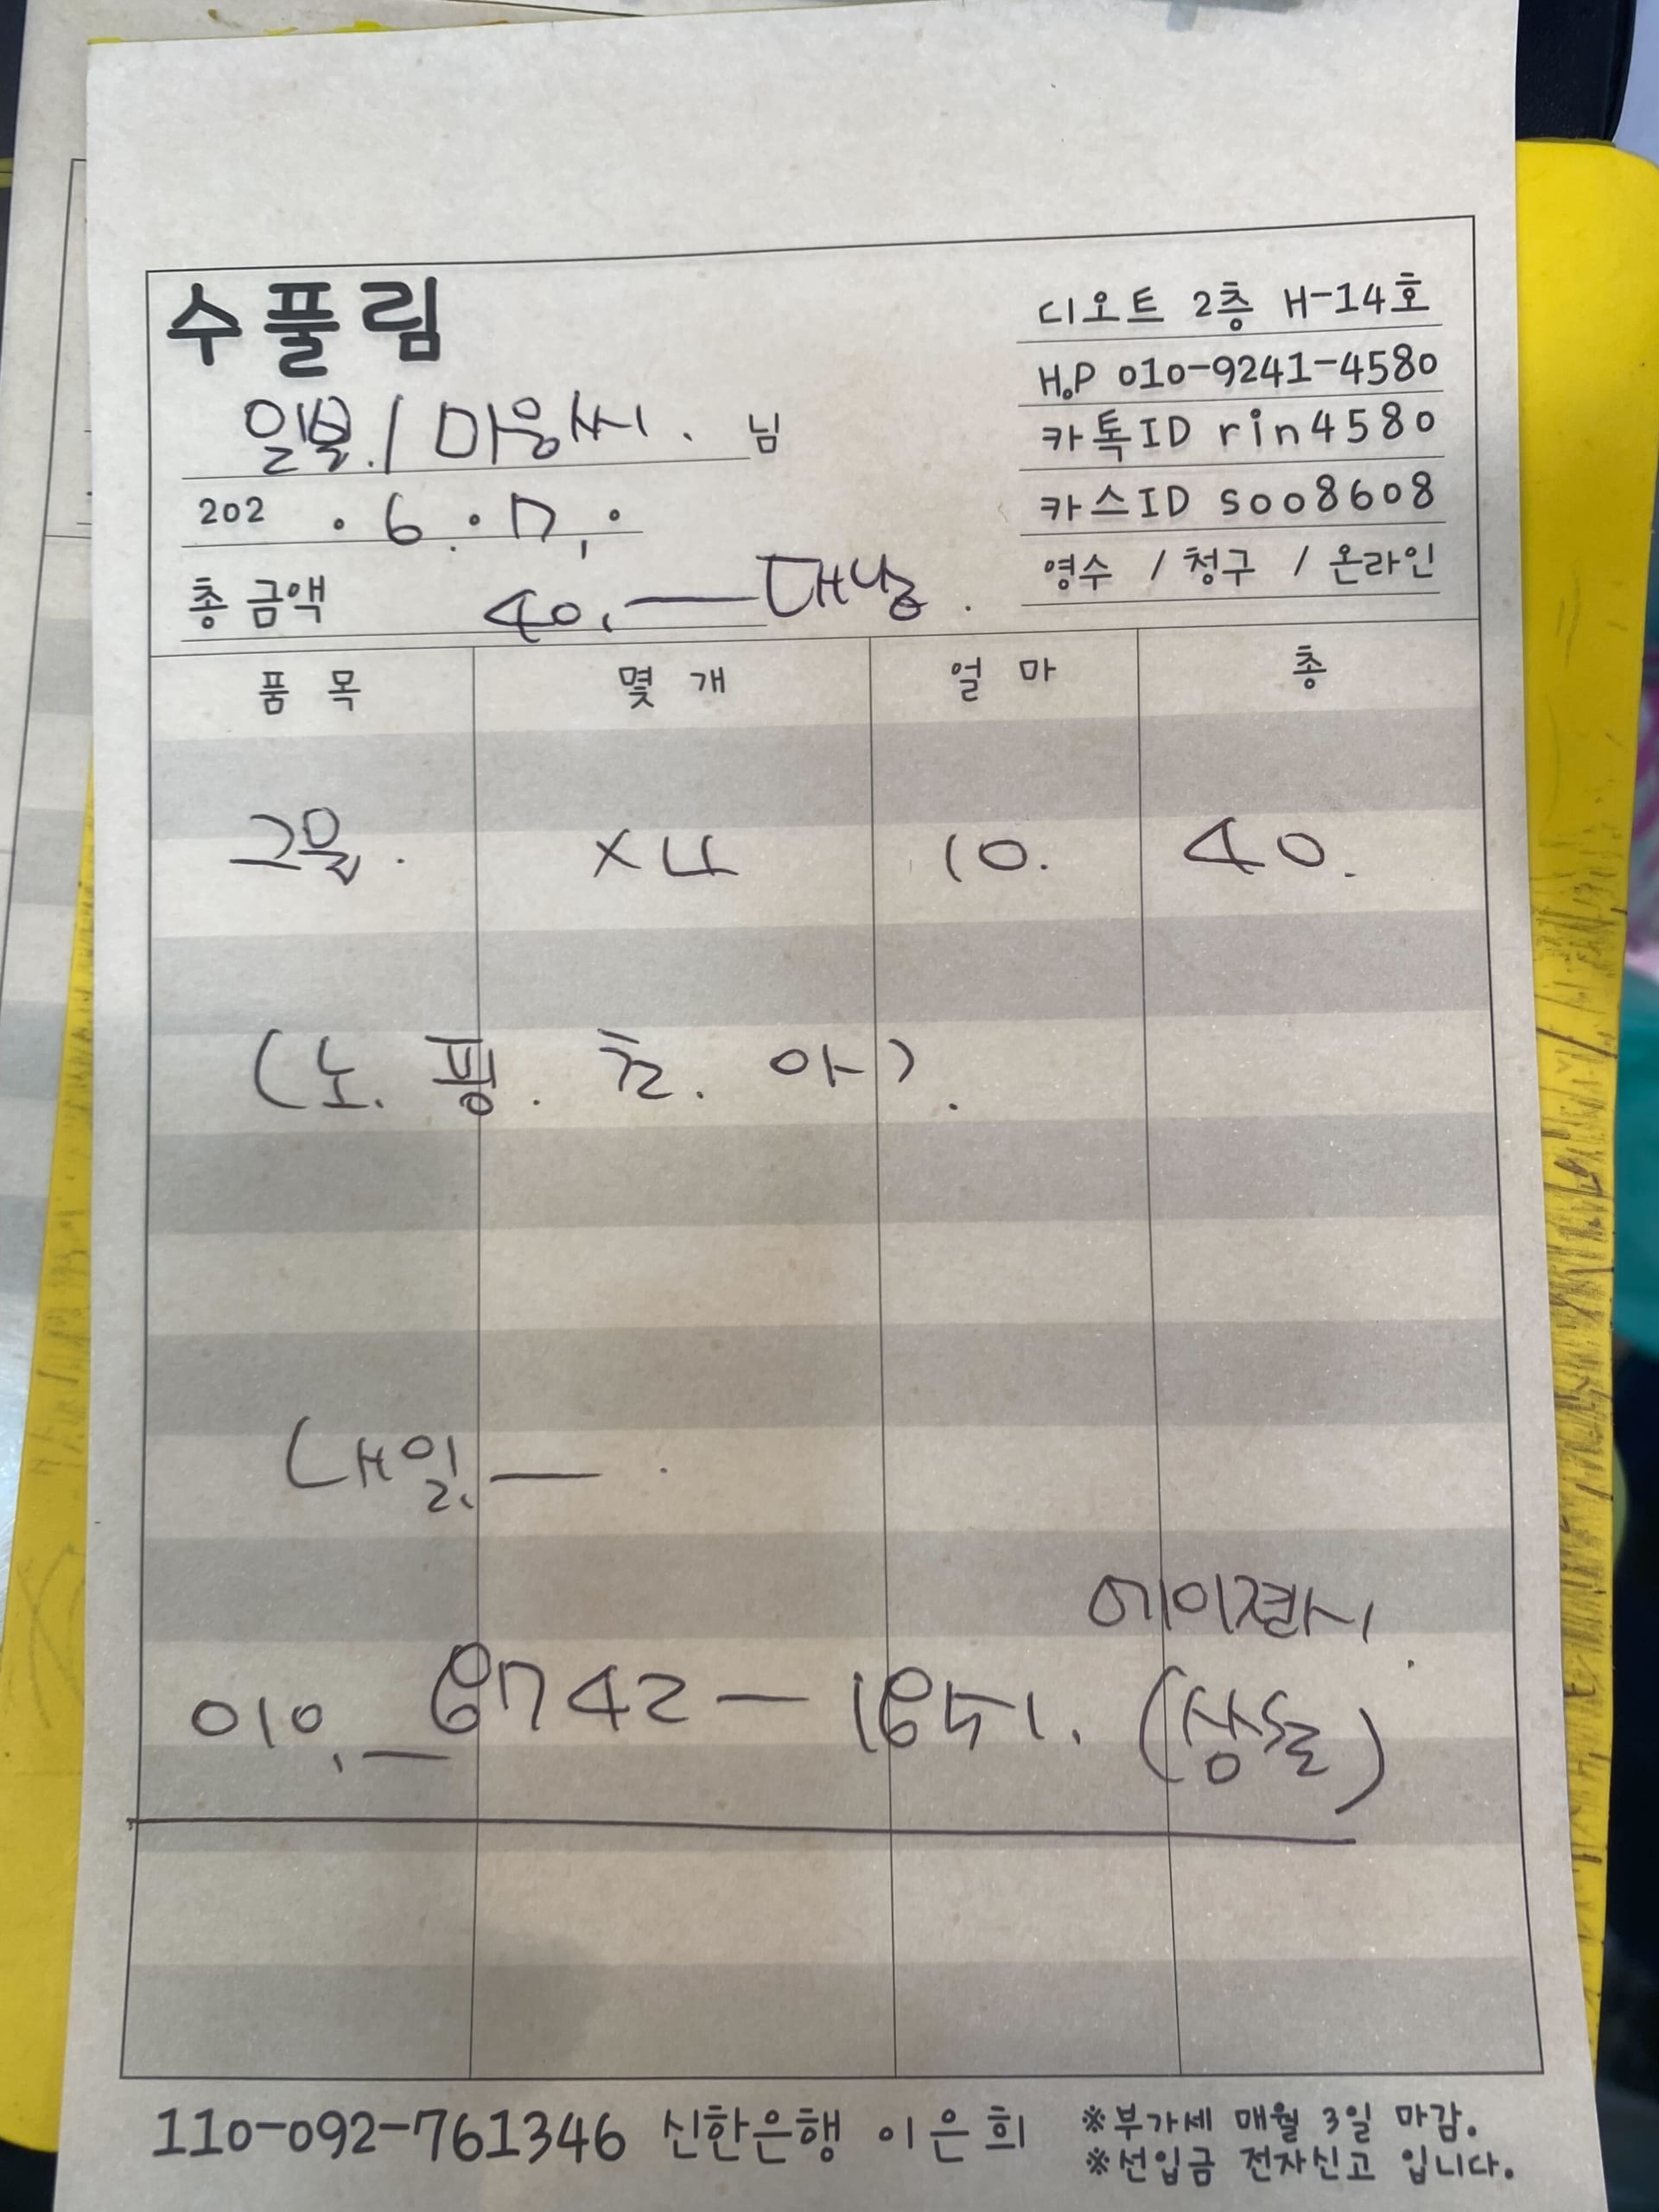 수풀림
디오트 2층 H-14호
H.P 010-9241-4580
카톡ID rin4580
카스ID soo8608
영수 / 청구 / 온라인
일본 / 마웅씨. 님
202 . 6 . 17 .
총 금액 40,— 대납.
품목 몇개 얼마 총
그물. x4 10. 40.
(노. 핑. 초. 아).
내일 — .
에이젼시.
010, — 8742 — 1851. (상훈)
110-092-761346 신한은행 이은희
※부가세 매월 3일 마감.
※선입금 전자신고 입니다.